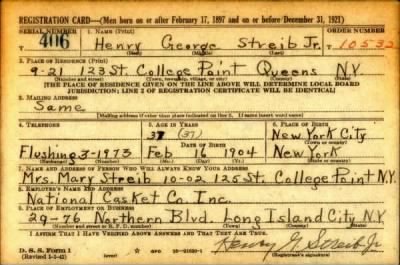 REGISTRATION CARD—(Men born on or after February 17, 1897 and on or before December 31, 1921)
SERIAL NUMBER 1. NAME (Print) ORDER NUMBER
406 Henry George Streib Jr. 10532
(First) (Middle) (Last)
2. PLACE OF RESIDENCE (Print)
9-21 123 St. College Point Queens N.Y.
(Number and street) (Town, township, village, or city) (County) (State)
[THE PLACE OF RESIDENCE GIVEN ON THE LINE ABOVE WILL DETERMINE LOCAL BOARD
JURISDICTION; LINE 2 OF REGISTRATION CERTIFICATE WILL BE IDENTICAL]
3. MAILING ADDRESS
Same
[Mailing address if other than place indicated on line 2. If same insert word same]
4. TELEPHONE 5. AGE IN YEARS 6. PLACE OF BIRTH
37 (37) New York City
DATE OF BIRTH (Town or county)
Flushing 3-1973 Feb 16 1904 New York
(Exchange) (Number) (Mo.) (Day) (Yr.) (State or country)
7. NAME AND ADDRESS OF PERSON WHO WILL ALWAYS KNOW YOUR ADDRESS
Mrs. Mary Streib 10-02 125 St. College Point N.Y.
8. EMPLOYER'S NAME AND ADDRESS
National Casket Co. Inc.
9. PLACE OF EMPLOYMENT OR BUSINESS
29-76 Northern Blvd. Long Island City N.Y.
(Number and street or R. F. D. number) (Town) (County) (State)
I AFFIRM THAT I HAVE VERIFIED ABOVE ANSWERS AND THAT THEY ARE TRUE.
D. S. S. Form 1 Henry G Streib Jr
(Revised 1-1-42) (over) 16—21630-1 (Registrant's signature)